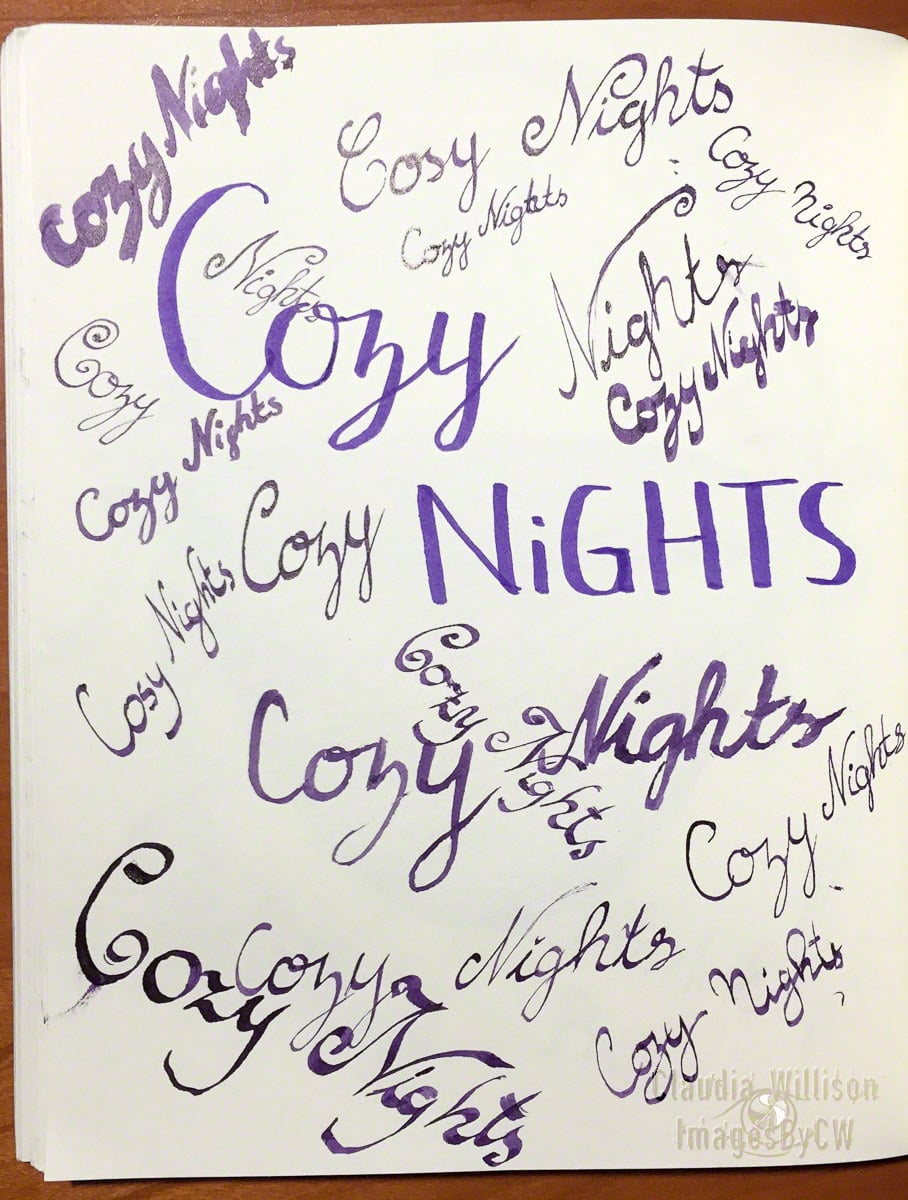 Cozy Nights
Cosy Nights
Cozy Nights
Cozy Nights
Cozy
Nights
Nights
Cozy
Cozy Nights
Cozy Nights
Cozy
NiGHTS
Cosy Nights
Cozy
Nights
Cozy Nights
Cozy Nights
Cozy
Nights
Cozy Nights
Cozy Nights
Claudia Willison
ImagesByCW